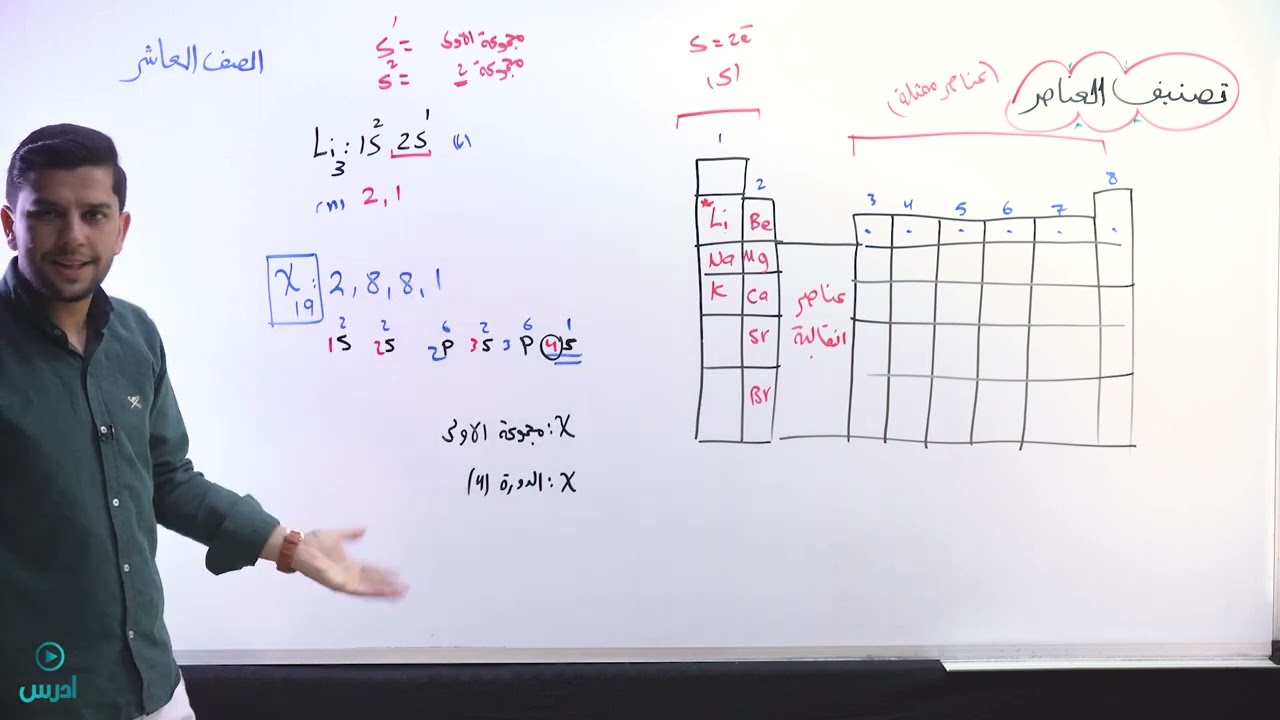 الصف العاشر
S¹ = مجموعة الاولى
S² = مجموعة 2
Li₃ : 1S² 2S¹
2, 1
X₁₉ : 2, 8, 8, 1
1S² 2S² 2P⁶ 3S² 3P⁶ 4S¹
X : مجموعة الاولى
X : الدورة (4)
تصنيف العناصر
(عناصر ممثلة)
S = 2e⁻
(S)
1
2 3 4 5 6 7 8
Li Be
Na Mg
K Ca
Sr
Br
عناصر
انتقالية
ادرس